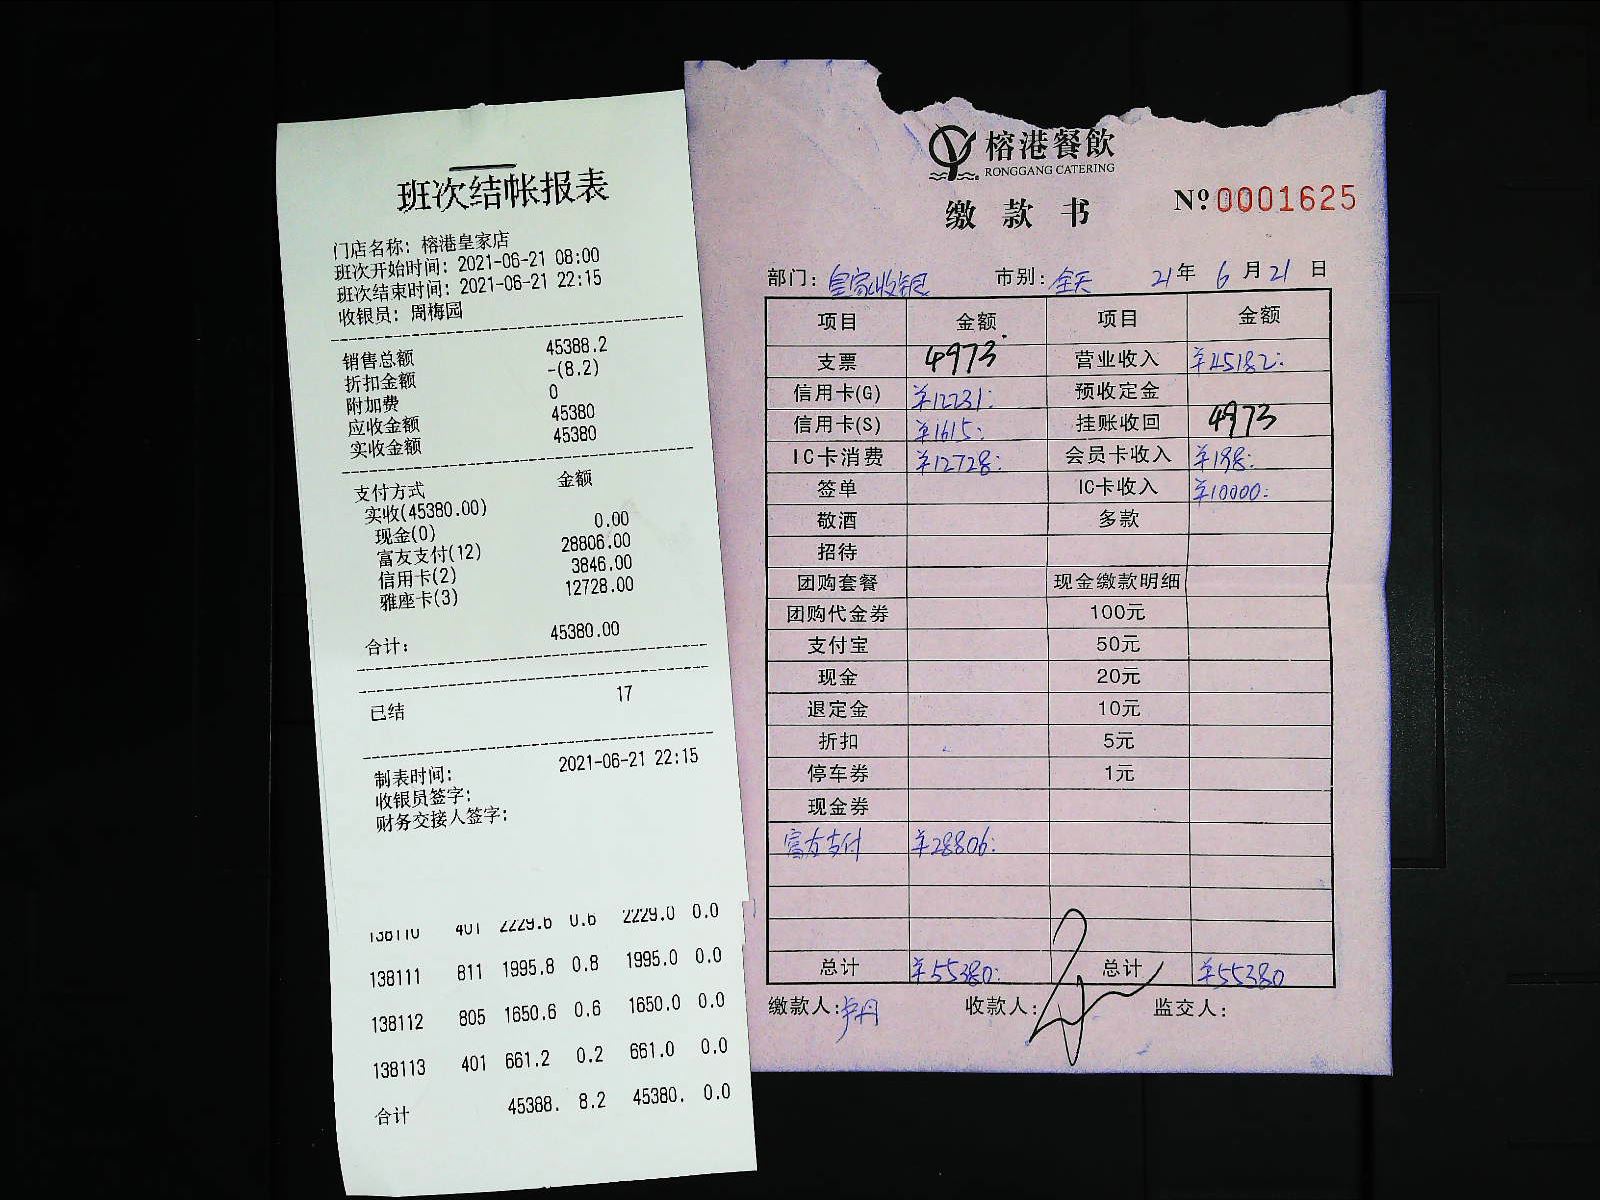 班次结帐报表
门店名称: 榕港皇家店
班次开始时间: 2021-06-21 08:00
班次结束时间: 2021-06-21 22:15
收银员: 周梅园
销售总额 45388.2
折扣金额 -(8.2)
附加费 0
应收金额 45380
实收金额 45380
支付方式 金额
实收(45380.00)
现金(0) 0.00
富友支付(12) 28806.00
信用卡(2) 3846.00
雅座卡(3) 12728.00
合计: 45380.00
已结 17
制表时间: 2021-06-21 22:15
收银员签字:
财务交接人签字:
138110 401 2229.6 0.6 2229.0 0.0
138111 811 1995.8 0.8 1995.0 0.0
138112 805 1650.6 0.6 1650.0 0.0
138113 401 661.2 0.2 661.0 0.0
合计 45388. 8.2 45380. 0.0
榕港餐飲
RONGGANG CATERING
缴款书
Nº 0001625
部门: 皇家收银 市别: 全天 21年 6月 21日
项目 金额 项目 金额
支票 4973 营业收入 ¥45182:
信用卡(G) ¥12231: 预收定金
信用卡(S) ¥1615: 挂账收回 4973
IC卡消费 ¥12728: 会员卡收入 ¥198:
签单 IC卡收入 ¥10000:
敬酒 多款
招待
团购套餐 现金缴款明细
团购代金券 100元
支付宝 50元
现金 20元
退定金 10元
折扣 5元
停车券 1元
现金券
富友支付 ¥28806:
总计 ¥55380: 总计 ¥55380
缴款人: 收款人: 监交人: